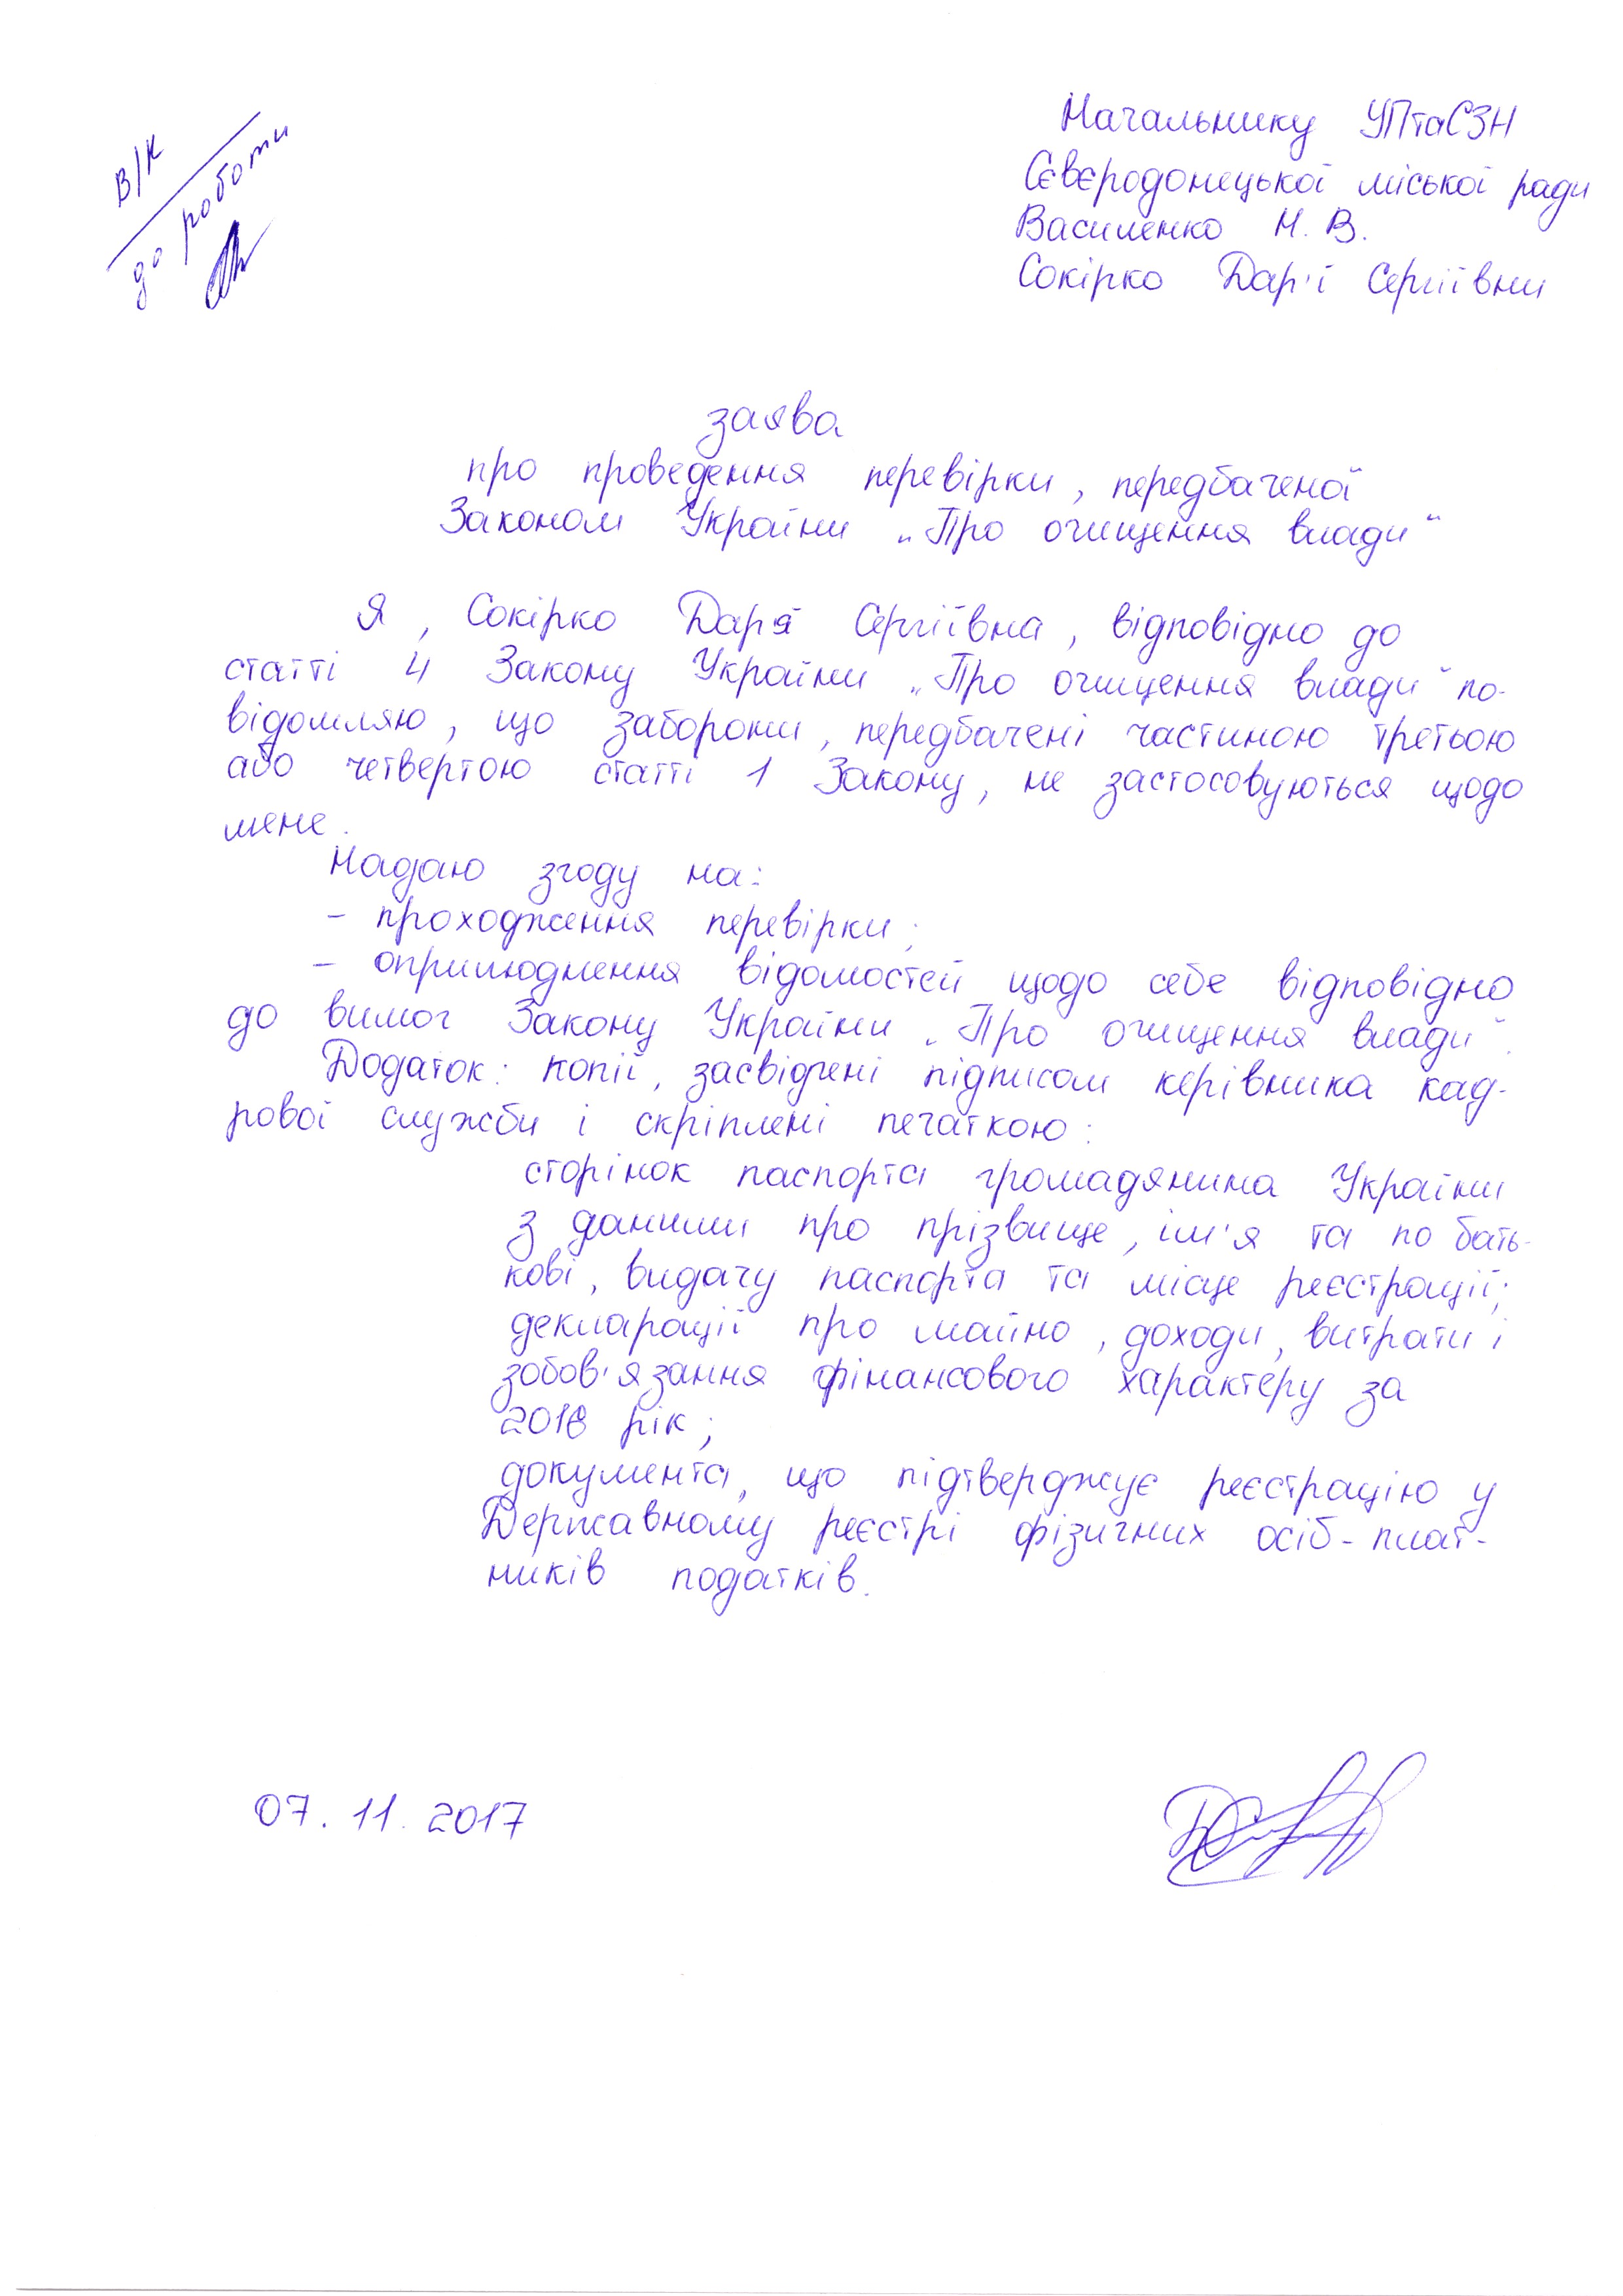 В/К
до роботи
Начальнику УПтаСЗН
Сєвєродонецької міської ради
Василенко Н. В.
Сокірко Дар'ї Сергіївни
заява
про проведення перевірки, передбаченої
Законом України „Про очищення влади“
Я, Сокірко Дар'я Сергіївна, відповідно до
статті 4 Закону України „Про очищення влади“ по-
відомляю, що заборони, передбачені частиною третьою
або четвертою статті 1 Закону, не застосовуються щодо
мене.
Надаю згоду на:
- проходження перевірки;
- оприлюднення відомостей щодо себе відповідно
до вимог Закону України „Про очищення влади“.
Додаток: копії, засвідчені підписом керівника кад-
рової служби і скріплені печаткою:
сторінок паспорта громадянина України
з даними про прізвище, ім'я та по бать-
кові, видачу паспорта та місце реєстрації;
декларації про майно, доходи, витрати і
зобов'язання фінансового характеру за
2016 рік;
документа, що підтверджує реєстрацію у
Державному реєстрі фізичних осіб-плат-
ників податків.
07.11.2017